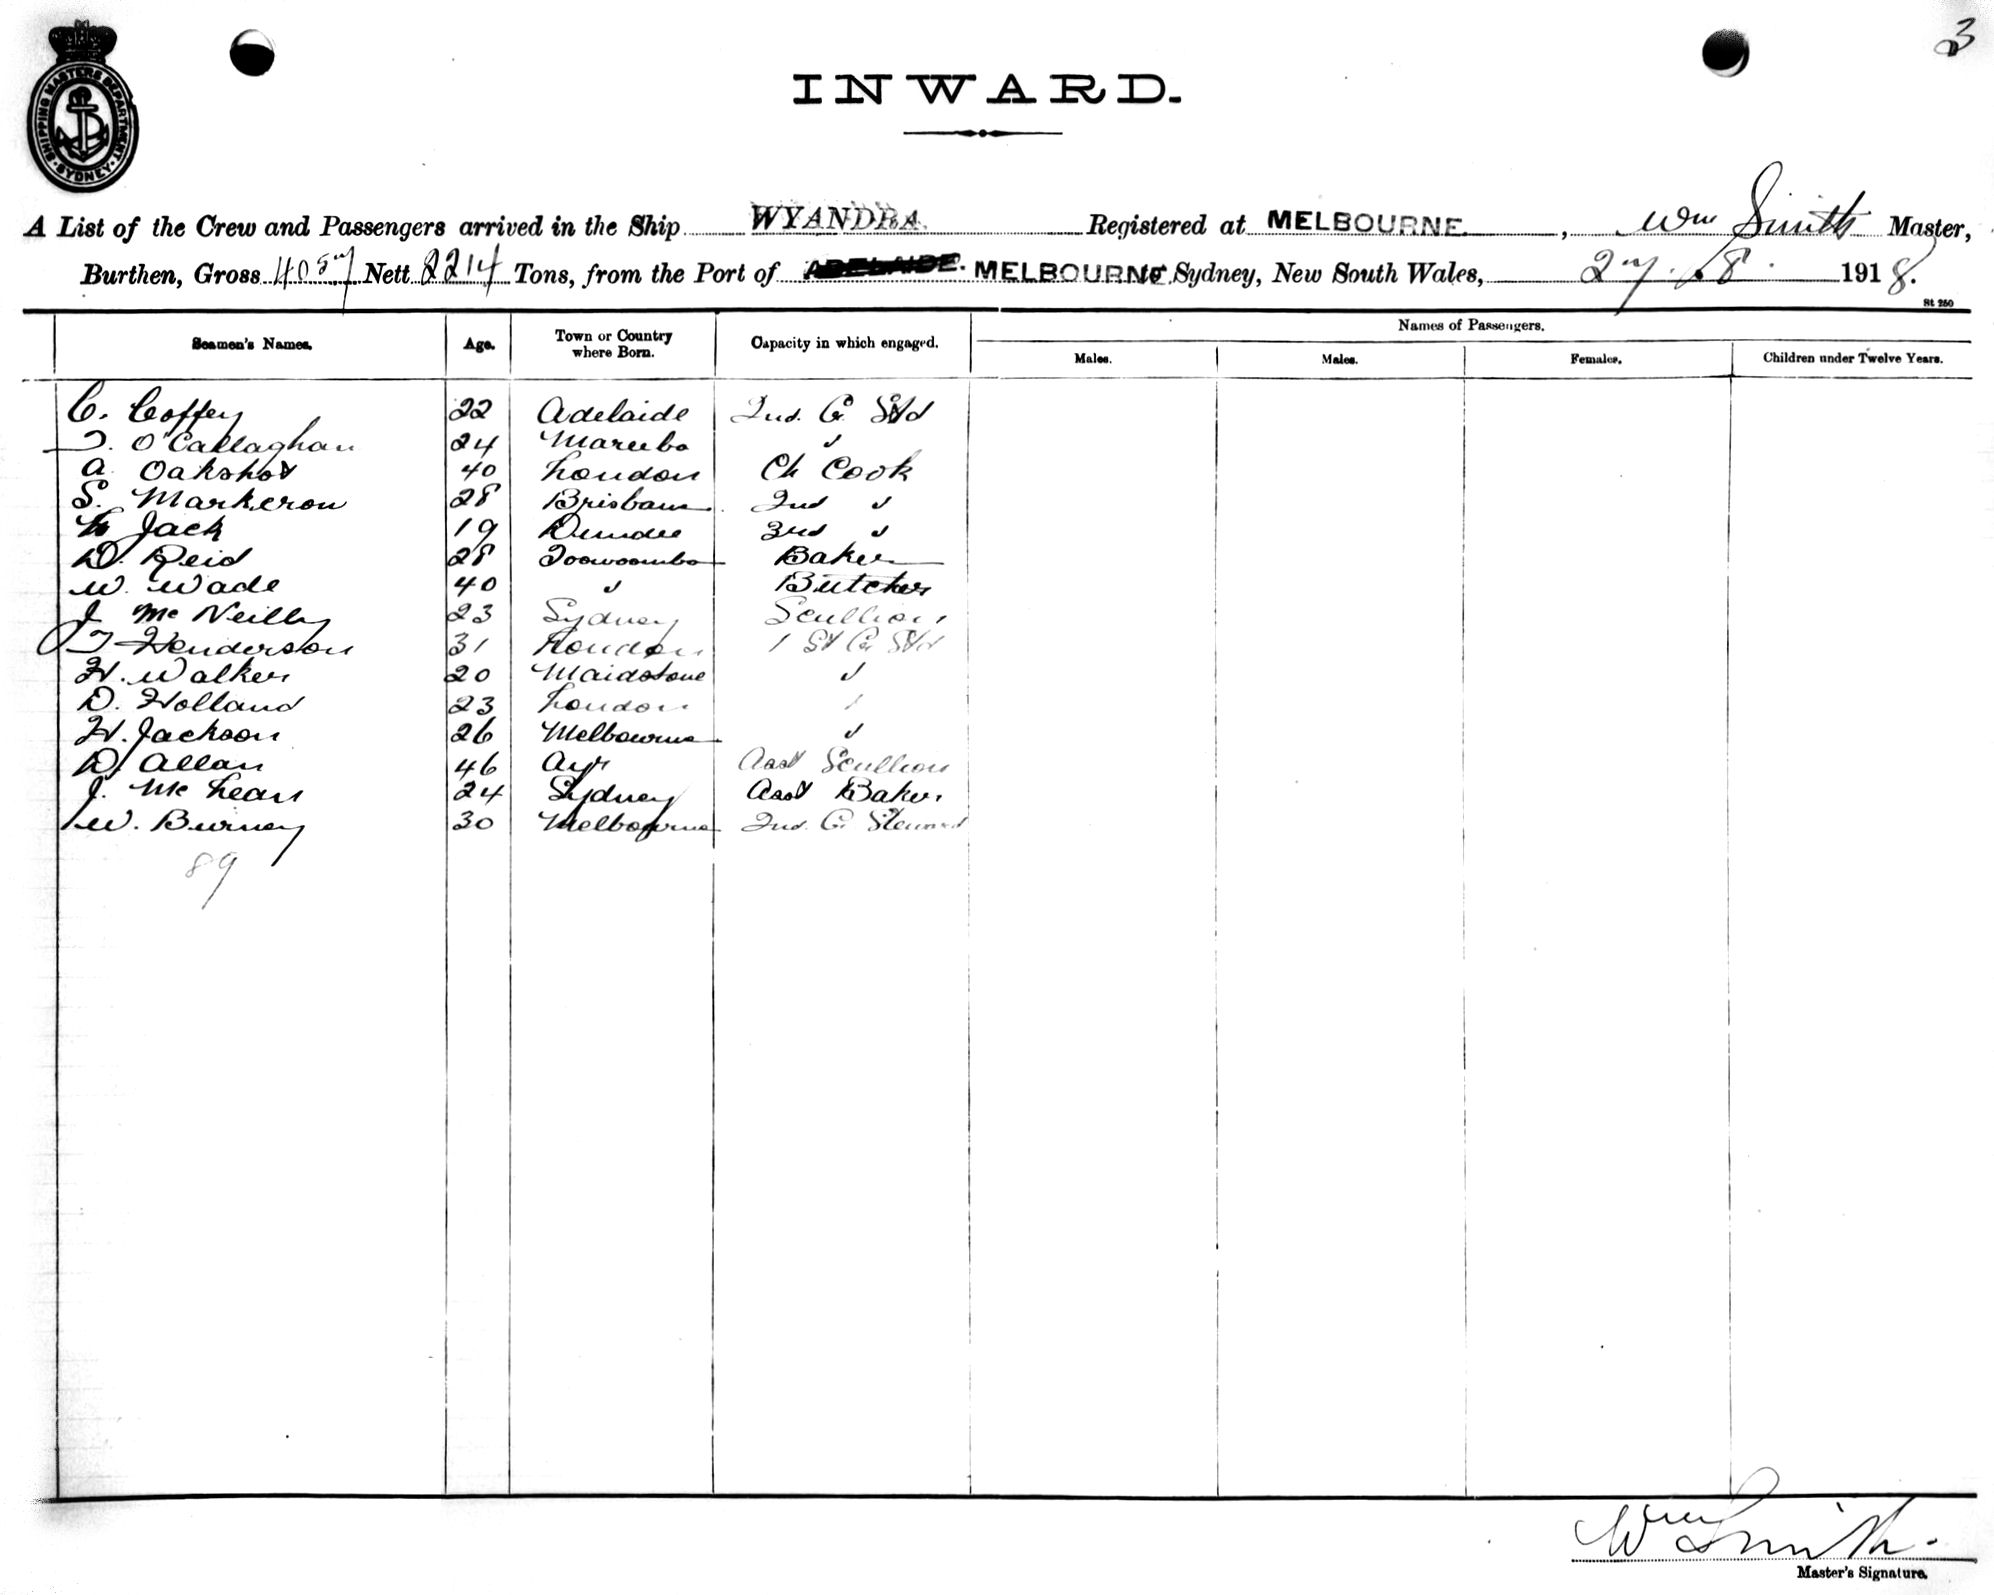 3
SHIPPING MASTERS DEPARTMENT SYDNEY
INWARD.
A List of the Crew and Passengers arrived in the Ship WYANDRA Registered at MELBOURNE, Wm Smith Master,
Burthen, Gross 4057 Nett 2214 Tons, from the Port of ADELAIDE. MELBOURNE Sydney, New South Wales, 27.8. 1918.
St 250
Seamen's Names. Age. Town or Country where Born. Capacity in which engaged. Names of Passengers.
Males. Males. Females. Children under Twelve Years.
C. Coffey 22 Adelaide 2nd. Cl. Std
T. O'Callaghan 24 Mareeba "
A. Oakshot 40 London Ch Cook
S. Markeron 28 Brisbane 2nd "
Jack 19 Dundee 3rd "
D. Reid 28 Toowoomba Baker
W. Wade 40 " Butcher
J McNeilly 23 Sydney Scullion
T Henderson 31 London 1 St Cl Std
H. Walker 20 Maidstone "
D. Holland 23 London "
H. Jackson 26 Melbourne "
D. Allan 46 Ayr Asst Scullion
J. McLean 24 Sydney Asst Baker
W. Burney 30 Melbourne 2nd. Cl. Steward
89
Wm Smith
Master's Signature.